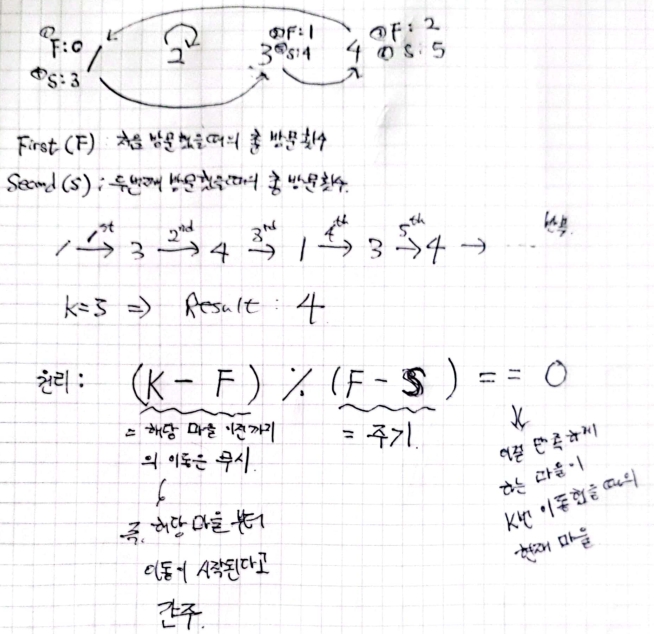 ① F:0
② S:3
1
2
3
① F:1
② S:4
4
① F: 2
② S: 5
First (F) : 처음 방문했을때의 총 방문횟수
Second (S) : 두번째 방문했을때의 총 방문횟수.
1 1st→ 3 2nd→ 4 3rd→ 1 4th→ 3 5th→ 4 → ... 반복.
K=5 => Result : 4
원리 : (K - F) % (F - S) == 0
= 해당 마을 이전까지
의 이동은 무시.
즉, 해당 마을 부터
이동이 시작된다고
간주.
= 주기.
이를 만족하게
하는 마을이
K번 이동했을때의
현재 마을